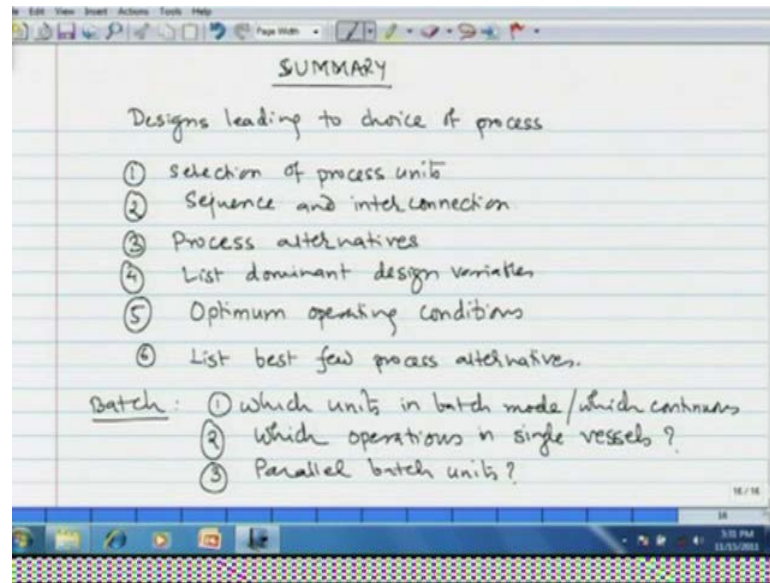 Edit View Insert Actions Tools Help
Page Width
SUMMARY
Designs leading to choice of process
① Selection of process units
② Sequence and interconnection
③ Process alternatives
④ List dominant design variables
⑤ Optimum operating conditions
⑥ List best few process alternatives.
Batch : ① which units in batch mode/which continuous
② which operations in single vessels ?
③ Parallel batch units ?
16/16
16
5:31 PM
11/15/2011